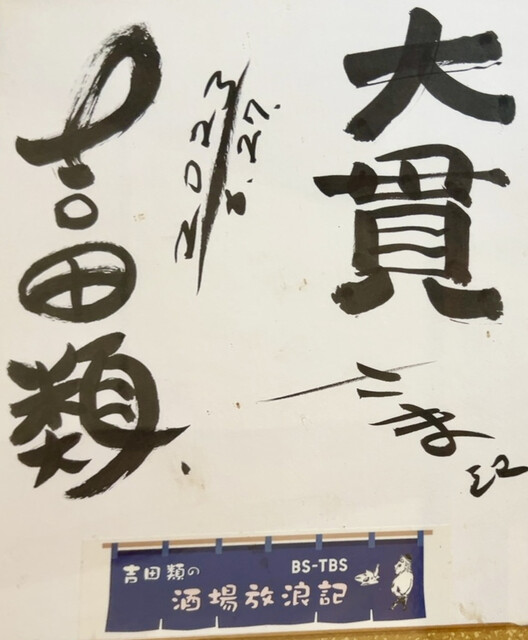 大貫
2023
8.27.
吉田類
吉田類の BS-TBS
酒場放浪記